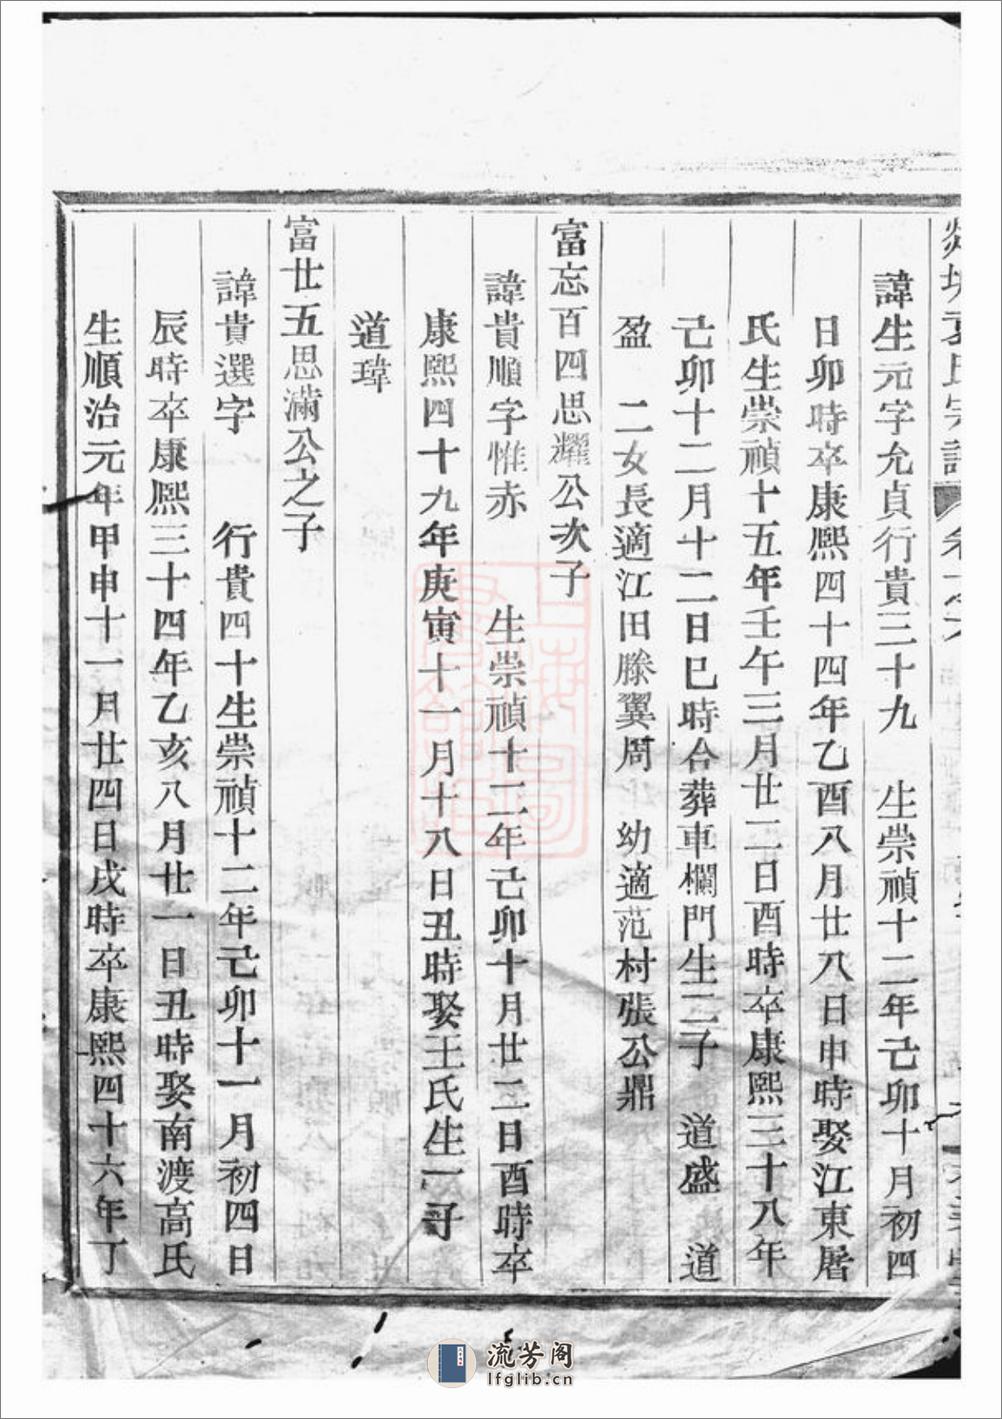 夏氏宗譜 卷之六
諱生元字允貞行貴三十九 生崇禎十二年己卯十月初四
日卯時卒康熙四十四年乙酉八月廿八日申時娶江東屠
氏生崇禎十五年壬午三月廿二日酉時卒康熙三十八年
己卯十二月十二日巳時合葬車欄門生二子 道盛 道
盈 二女長適江田滕翼周 幼適范村張公鼎
富忘百四思耀公次子
諱貴順字惟赤 生崇禎十二年己卯十月廿二日酉時卒
康熙四十九年庚寅十一月十八日丑時娶王氏生一子
道瑋
富廿五思滿公之子
諱貴選字 行貴四十生崇禎十二年己卯十一月初四日
辰時卒康熙三十四年乙亥八月廿一日丑時娶南渡高氏
生順治元年甲申十一月廿四日戌時卒康熙四十六年丁
流芳阁
lfglib.cn